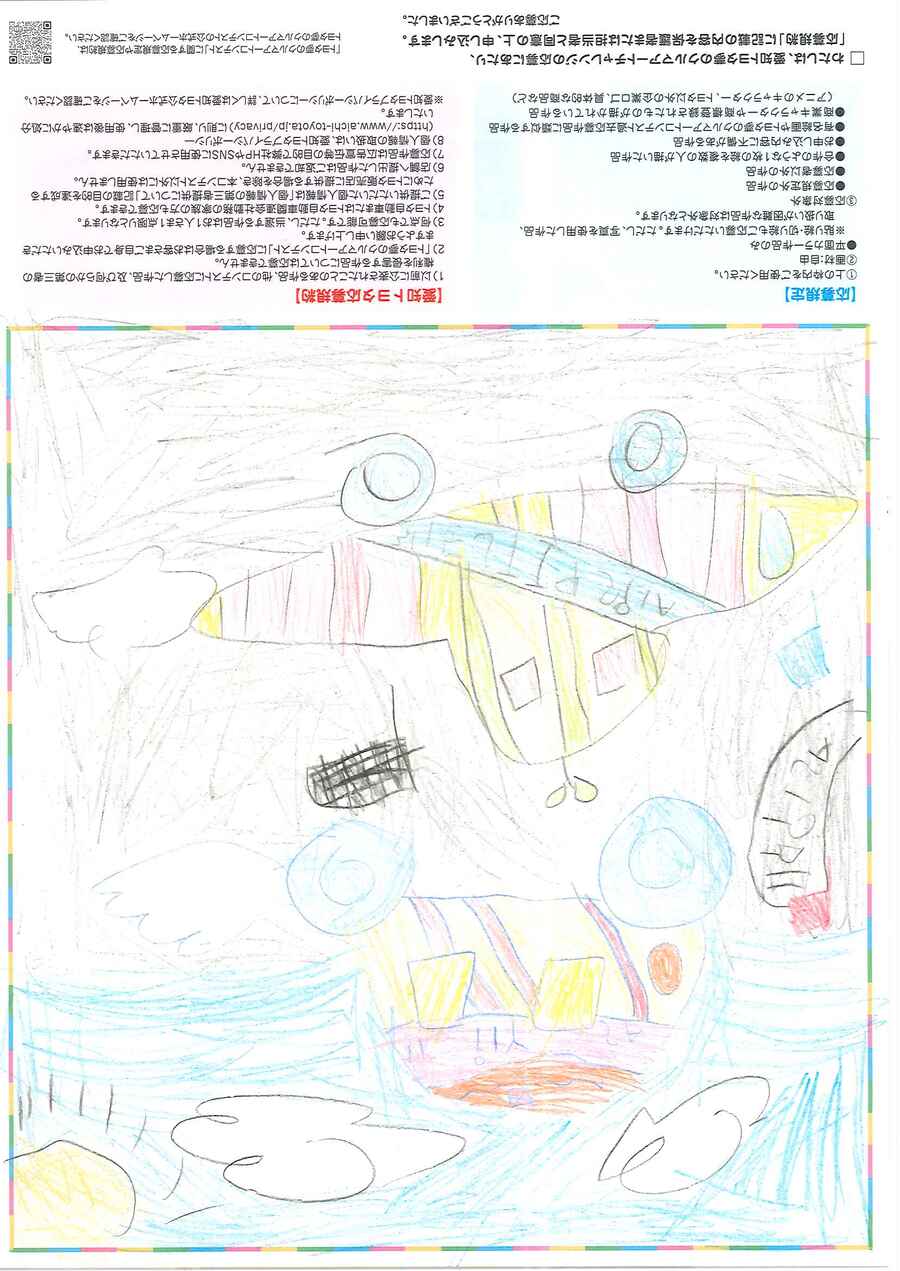 【応募規定】
①上の枠内をご使用ください。
②画材:自由
●平面カラー作品のみ
※貼り絵・切り絵もご応募いただけます。ただし、写真を使用した作品、
取り扱いが困難な作品は対象外となります。
③応募対象外
●応募規定外の作品
●応募者以外の作品
●合作のような1枚の絵を複数の人が描いた作品
●お申し込み内容に不備がある作品
●有名絵画やトヨタ夢のクルマアートコンテスト過去応募作品に類似する作品
●商業キャラクターや商標登録されたものが描かれている作品
（アニメのキャラクター、トヨタ以外の企業ロゴ、具体的な商品など）
【愛知トヨタ応募規約】
1）以前に公表されたことのある作品、他のコンテストに応募した作品、及び何らかの第三者の
権利を侵害する作品については応募できません。
2）「トヨタ夢のクルマアートコンテスト」に応募する場合はお客さまご自身でお申込みいただき
ますようお願い申し上げます。
3）何点でも応募可能です。ただし、当選する作品はお1人さま1点限りとなります。
4）トヨタ自動車またはトヨタ自動車関連会社勤務の家族の方も応募できます。
5）ご提供いただいた個人情報は「個人情報の第三者提供について」記載の目的を達成する
ためにトヨタ販売店に提供する場合を除き、本コンテスト以外には使用しません。
6）店舗へ提出した作品はご返却できません。
7）応募作品は広告宣伝等の目的で弊社HPやSNSに使用させていただきます。
8）個人情報の取扱いは、愛知トヨタプライバシーポリシー
（https://www.aichi-toyota.jp/privacy）に則り、厳重に管理し、使用後は速やかに処分
いたします。
※愛知トヨタプライバシーポリシーについて、詳しくは愛知トヨタ公式ホームページをご確認ください。
□ わたしは、愛知トヨタ夢のクルマアートチャレンジの応募にあたり、
「応募規約」に記載の内容を保護者または担当者と同意の上、申し込みします。
ご応募ありがとうございました。
「トヨタ夢のクルマアートコンテスト」に関する応募規定や応募規約は、
トヨタ夢のクルマアートコンテストの公式ホームページをご確認ください。